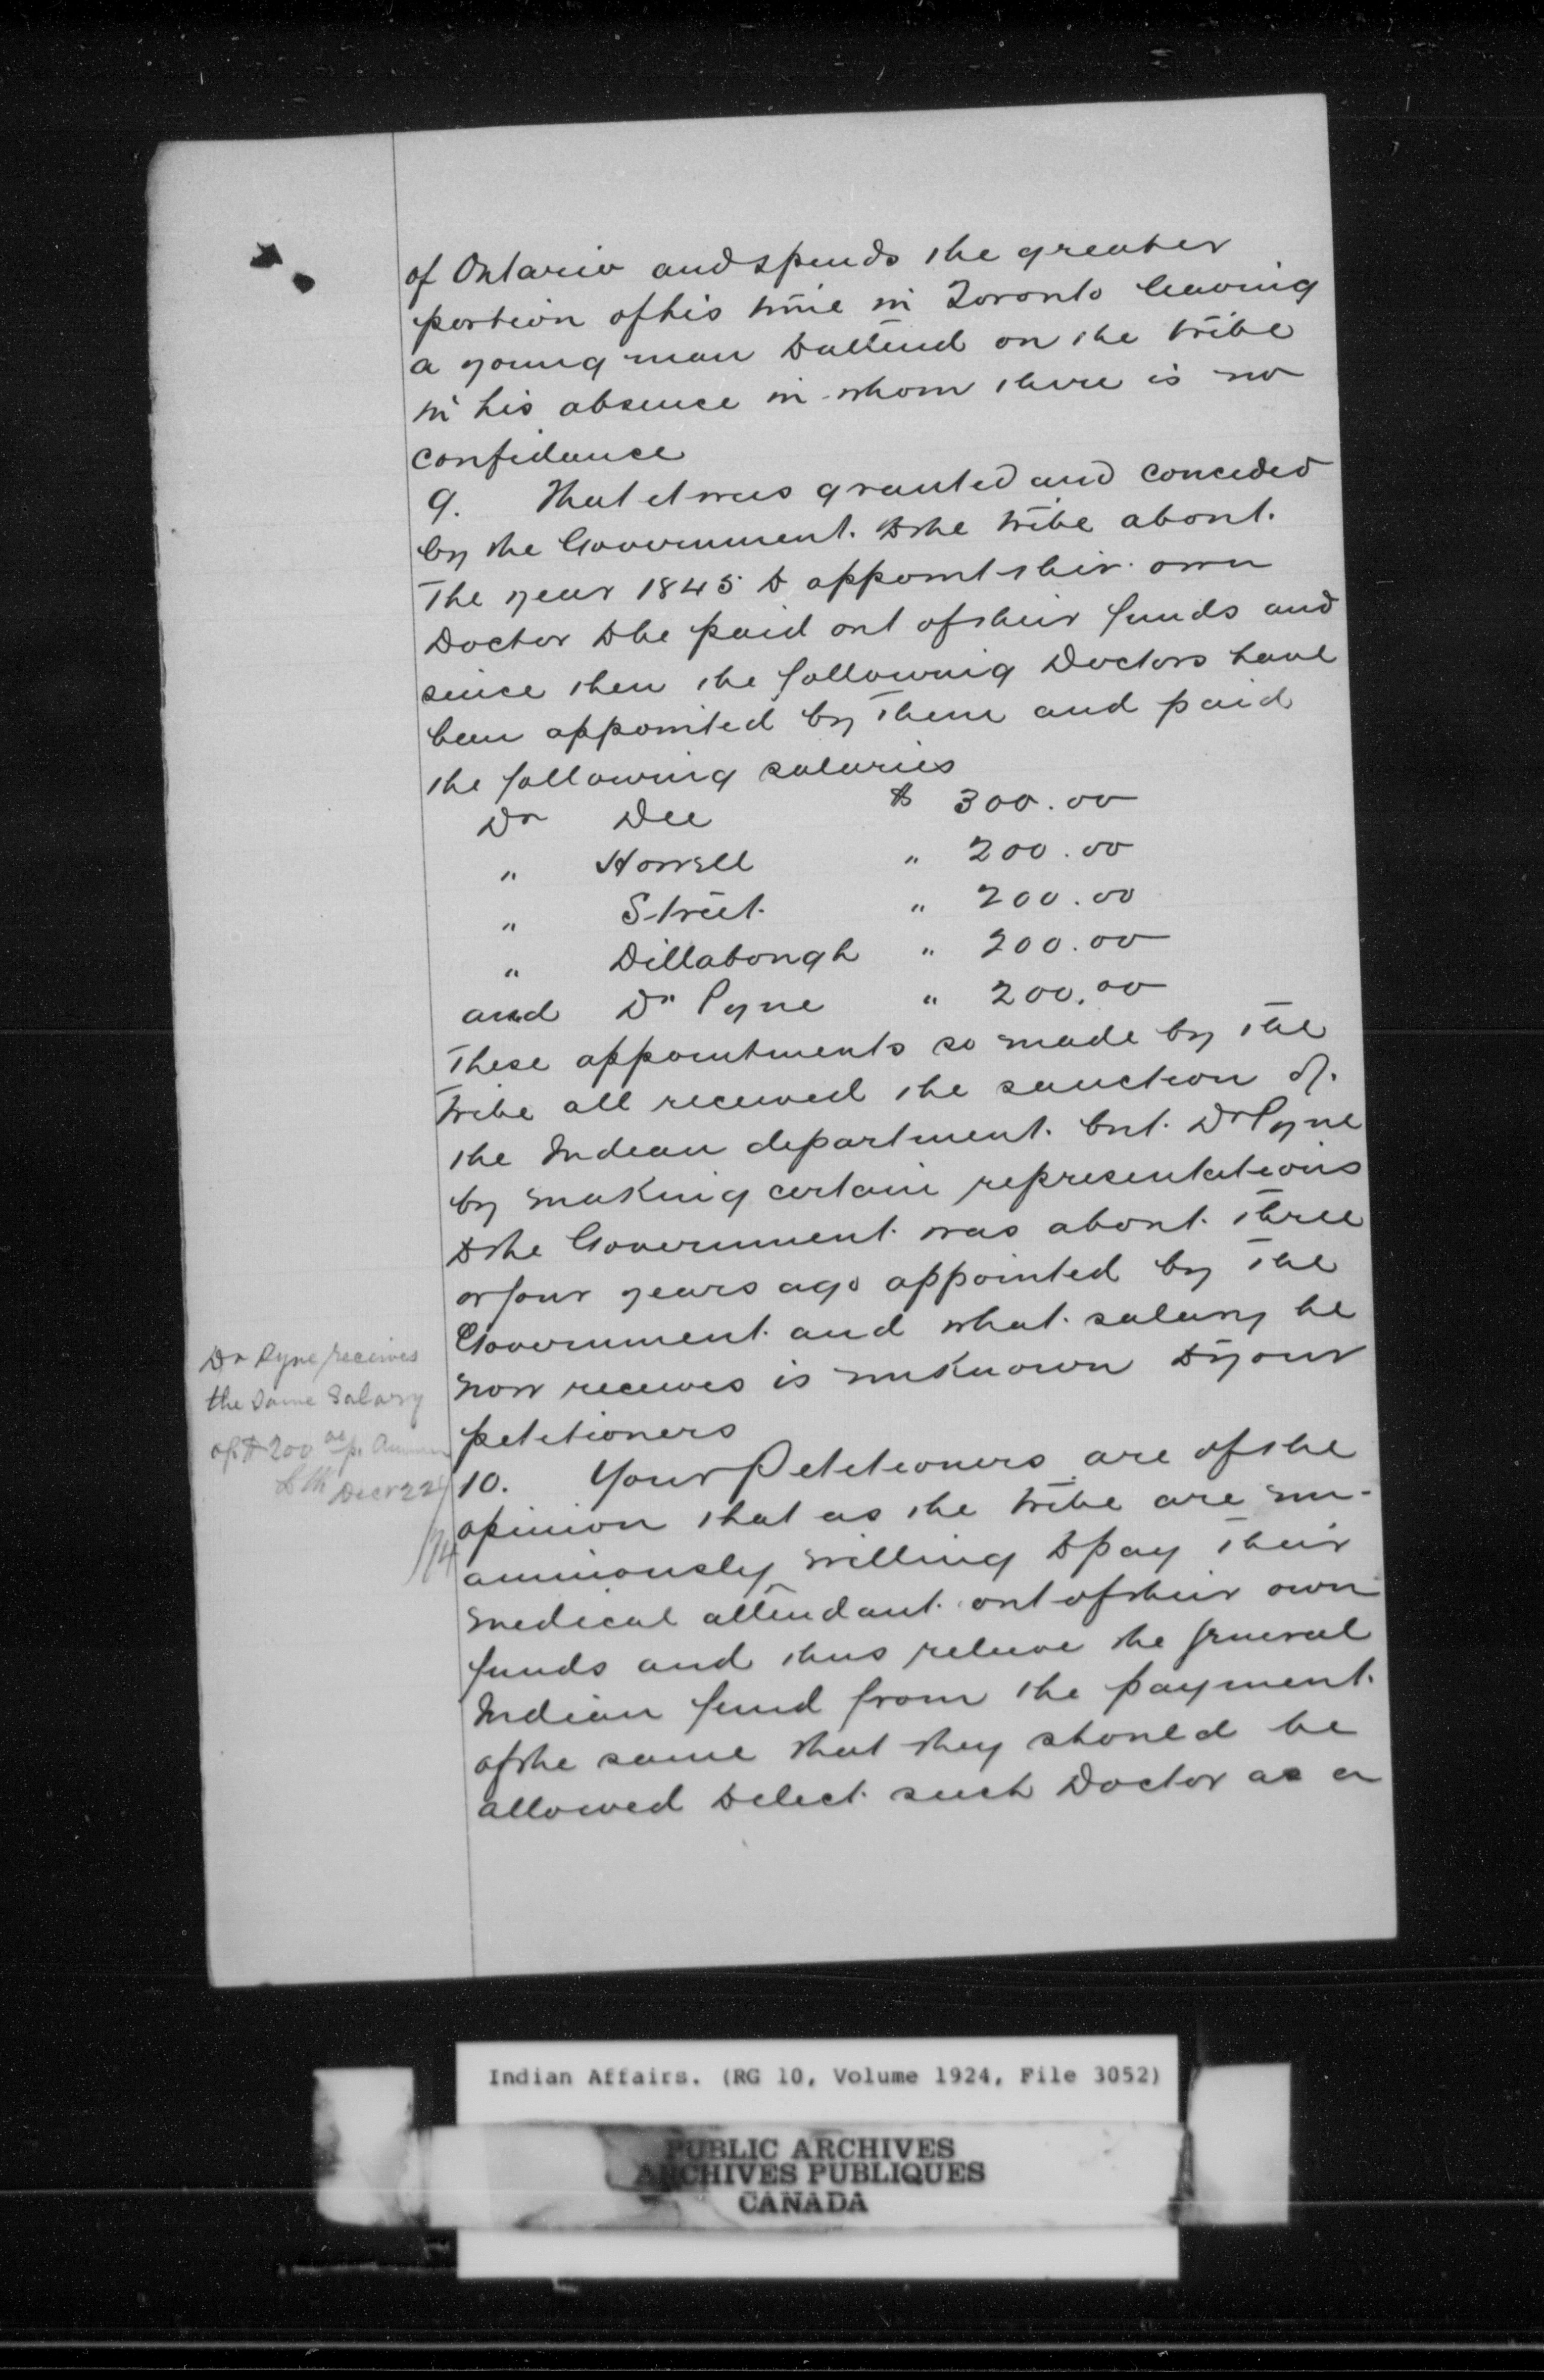 of Ontario and spends the greater
portion of his time in Toronto leaving
a young man to attend on the tribe
in his absence in whom there is no
confidence
9. That it was granted and conceded
by the Government to the tribe about
the year 1845 to appoint their own
Doctor to be paid out of their funds and
since then the following Doctors have
been appointed by them and paid
the following salaries
Dr Dee $ 300.00
" Howell " 200.00
" Street " 200.00
" Dillabough " 200.00
and Dr Pyne " 200.00
These appointments so made by the
tribe all received the sanction of
the Indian department but Dr Pyne
by making certain representations
to the Government was about three
or four years ago appointed by the
Government and what salary he
now receives is unknown to your
petitioners
Dr Pyne receives
the same Salary
of $200 00 p. Annum
Decr 22
/74
10. Your Petitioners are of the
opinion that as the tribe are un-
animously willing to pay their
medical attendant out of their own
funds and thus relieve the general
Indian fund from the payment
of the same that they should be
allowed to elect such Doctor as a
Indian Affairs. (RG 10, Volume 1924, File 3052)
PUBLIC ARCHIVES
ARCHIVES PUBLIQUES
CANADA